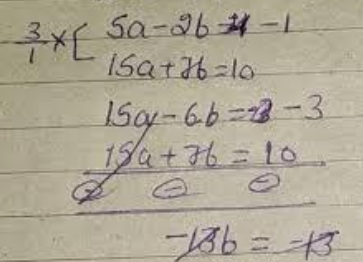 3/1 × [ 5a - 2b = -1
15a + 7b = 10
15a - 6b = -3
15a + 7b = 10
⊖ ⊖ ⊖
-13b = -13